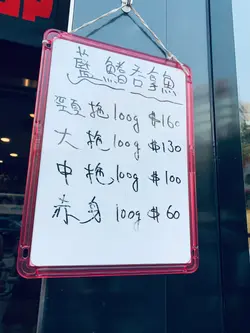 藍鰭吞拿魚
頸拖100g $160
大拖100g $130
中拖100g $100
赤身 100g $60